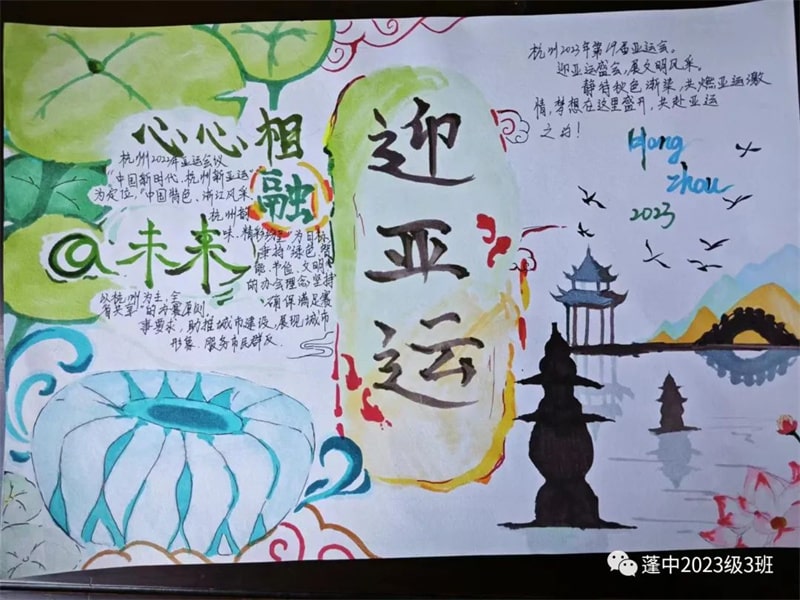 心心相
融
@未来
杭州2022年亚运会以
“中国新时代·杭州新亚运”
为定位,“中国特色、浙江风采
杭州韵
味、精彩纷呈”为目标,
秉持“绿色、智
能、节俭、文明”
的办会理念,坚持
以杭州为主,全
省共享”的办赛原则,确保满足赛
事要求,助推城市建设,展现城市
形象,服务市民群众
迎
亚
运
杭州2023年第19届亚运会。
迎亚运盛会,展文明风采。
静待秋色渐染,共燃亚运激
情,梦想在这里盛开,共赴亚运
之约!
Hang
zhou
2023
蓬中2023级3班